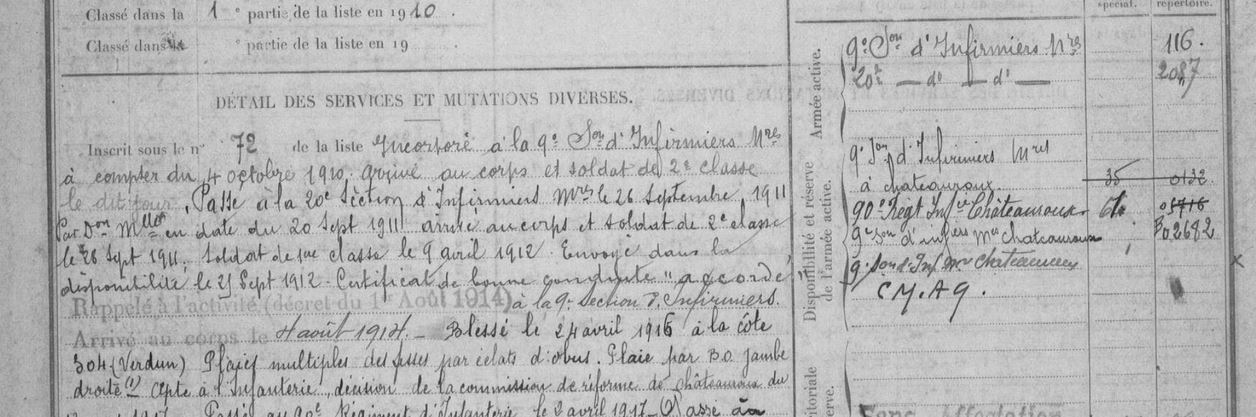 Classé dans la 1e partie de la liste en 1910.
Classé dans la e partie de la liste en 19
DÉTAIL DES SERVICES ET MUTATIONS DIVERSES.
Inscrit sous le n° 72 de la liste Incorporé à la 9e Son d'Infirmiers Mres
à compter du 4 octobre 1910, arrivé au corps et soldat de 2e classe
le dit jour. Passé à la 20e Section d'Infirmiers Mres le 26 septembre 1911
Par Don Mlle en date du 20 Sept 1911 arrivé au corps et soldat de 2e classe
le 26 Sept 1911, soldat de 1re classe le 9 avril 1912. Envoyé dans la
disponibilité le 25 Sept 1912. Certificat de bonne conduite "accordé"
Rappelé à l'activité (décret du 1er Août 1914) à la 9e Section d'Infirmiers.
Arrivé au corps le 4 août 1914. - Blessé le 24 avril 1916 à la côte
304 (Verdun) Plaies multiples des fesses par éclats d'obus. Plaie par B.O. jambe
droite (1) Apte à l'Infanterie, décision de la commission de réforme de châteauroux du
1917 Passé au 90e Régiment d'Infanterie le 2 avril 1917 - Passé au
spécial. répertoire.
Armée active.
9e Son d'Infirmiers Mres 116.
20e — do — do — 2087
Disponibilité et réserve de l'armée active.
9e Son d'Infirmiers Mres
à chateauroux. 35 0132
90e Régt Infie Châteauroux
9e Son d'infiers Mres chateauroux 02682
9e Son d'Inf Mres Chateauroux
C.M.A 9.
Sans Affectation